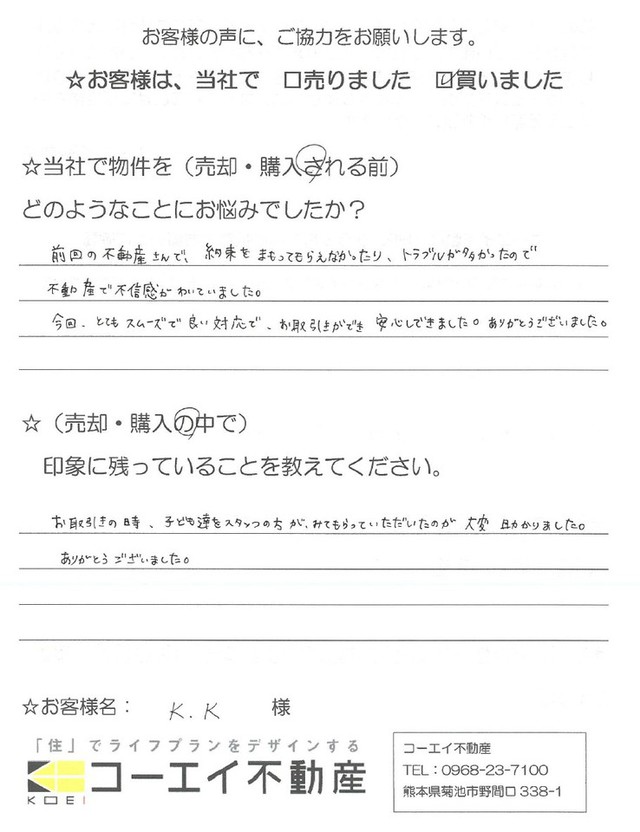 お客様の声に、ご協力をお願いします。
☆お客様は、当社で □売りました ☑買いました
☆当社で物件を（売却・購入される前）
どのようなことにお悩みでしたか？
前回の不動産さんで、約束をまもってもらえなかったり、トラブルが多かったので
不動産で不信感がわいていました。
今回、とてもスムーズで良い対応で、お取引きができ安心しできました。ありがとうございました。
☆（売却・購入の中で）
印象に残っていることを教えてください。
お取引きの時、子ども達をスタッフの方が、みてもらっていただいたのが大変助かりました。
ありがとうございました。
☆お客様名： K.K 様
「住」でライフプランをデザインする
KOEI コーエイ不動産
コーエイ不動産
TEL：0968-23-7100
熊本県菊池市野間口338-1